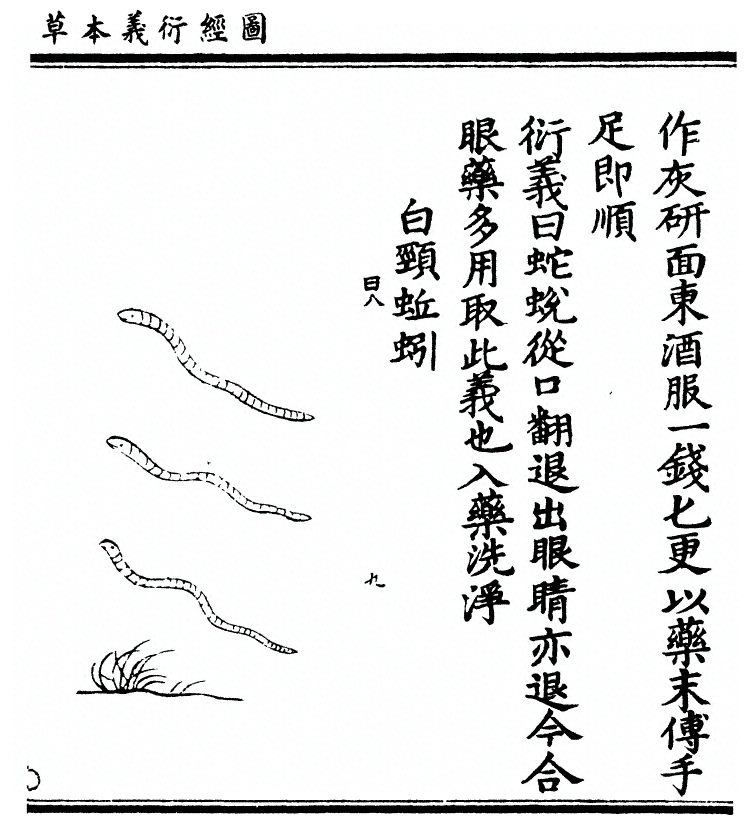 圖經衍義本草
作灰研面東酒服一錢匕更以藥末傅手
足即順
衍義曰蛇蛻從口翻退出眼睛亦退今合
眼藥多用取此義也入藥洗淨
白頸蚯蚓
九